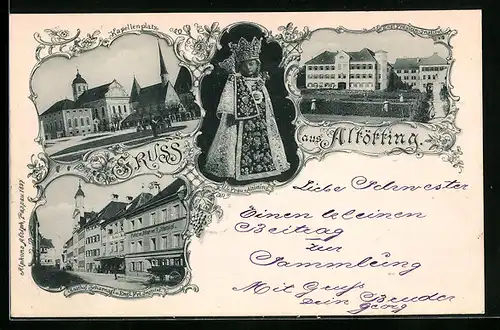 Kapellenplatz
GRUSS
aus Altötting.
Alphons Adolph, Passau 1897
Liebe Schwester
Einen kleinen
Beitrag
zur
Sammlung
Mit Gruß
Dein Bruder
Georg